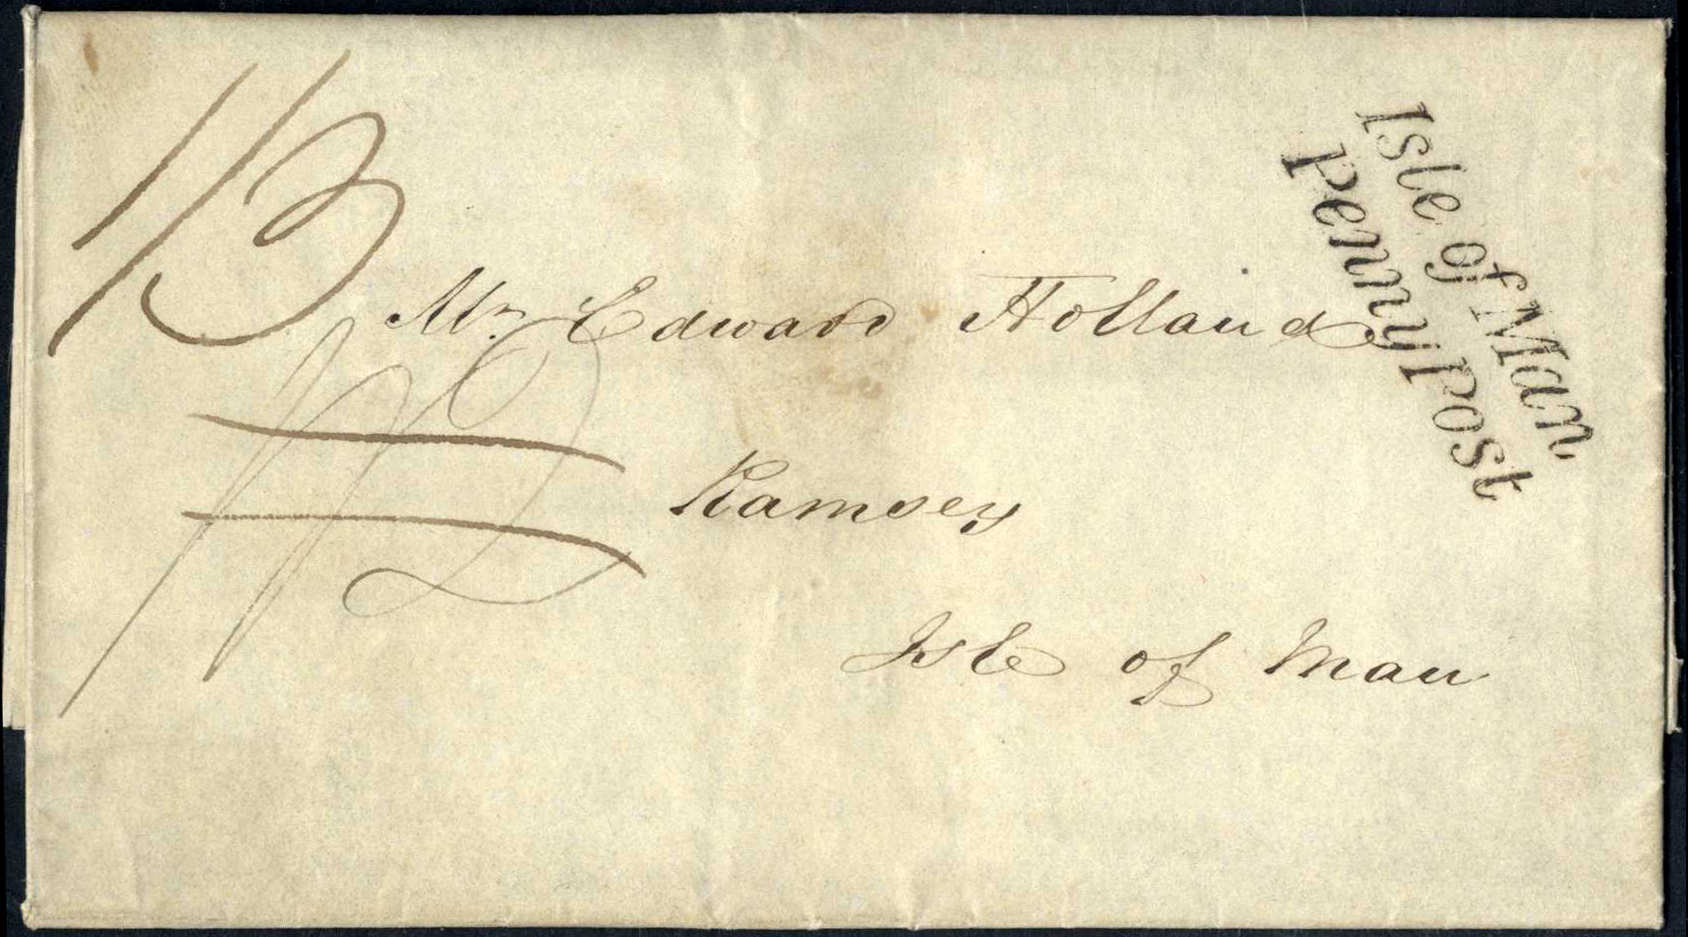 1/3
Mr. Edward Holland
Ramsey
Isle of Man
Isle of Man
Penny Post